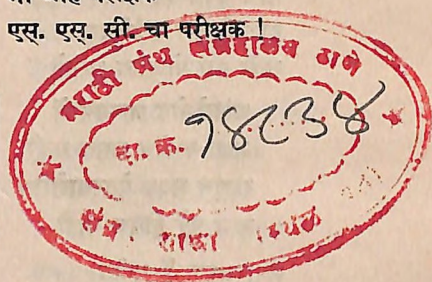 एस्. एस्. सी. चा परीक्षक !
मराठी ग्रंथ संग्रहालय ठाणे
दा. क. १८८३४
शाखा